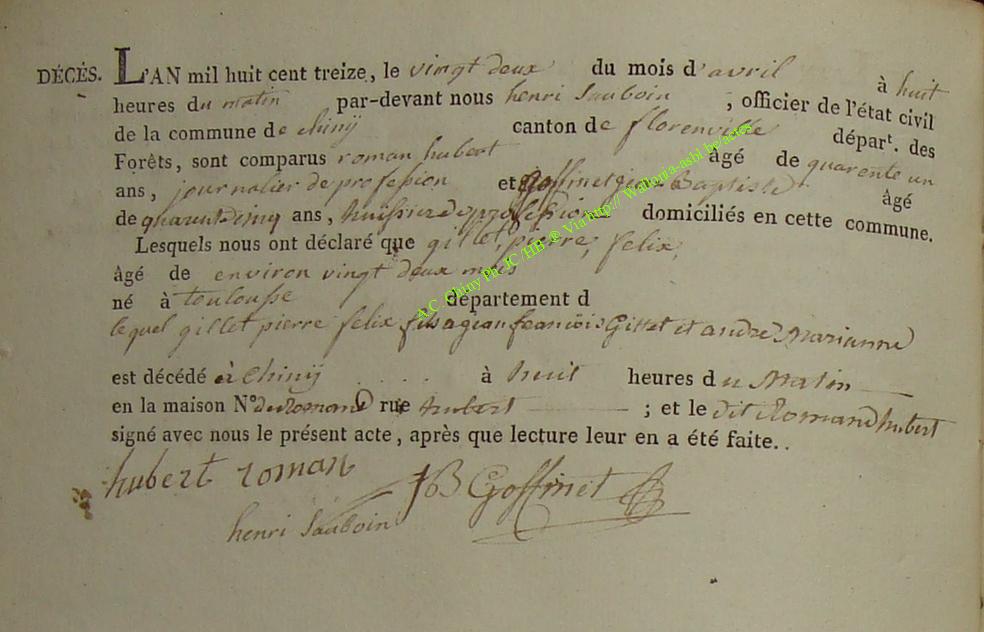 DÉCÉS. L'AN mil huit cent treize, le vingt deux du mois d'avril à huit
heures du matin par-devant nous henri Sauboin ; officier de l'état civil
de la commune de chinÿ canton de florenville départ. des
Forêts, sont comparus roman hubert âgé de quarente un
ans, journalier de profession et Goffinet Baptiste âgé
de quarent cinq ans, huissier de profession domiciliés en cette commune.
Lesquels nous ont déclaré que gillet, pierre, felix,
âgé de environ vingt deux mois
né à toulousse département d
lequel gillet pierre felix fils a gian francois Gillet et andre Marianne
est décédé à Chinÿ . . . . à huit heures du Matin
en la maison N° du Romand rue hubert ; et le dit Romand hubert
signé avec nous le présent acte, après que lecture leur en a été faite..
hubert roman JB Goffinet
henri Sauboin
A.C. Chiny Ph. JC /HB ® Via http:// Wallonia-asbl.be/actes